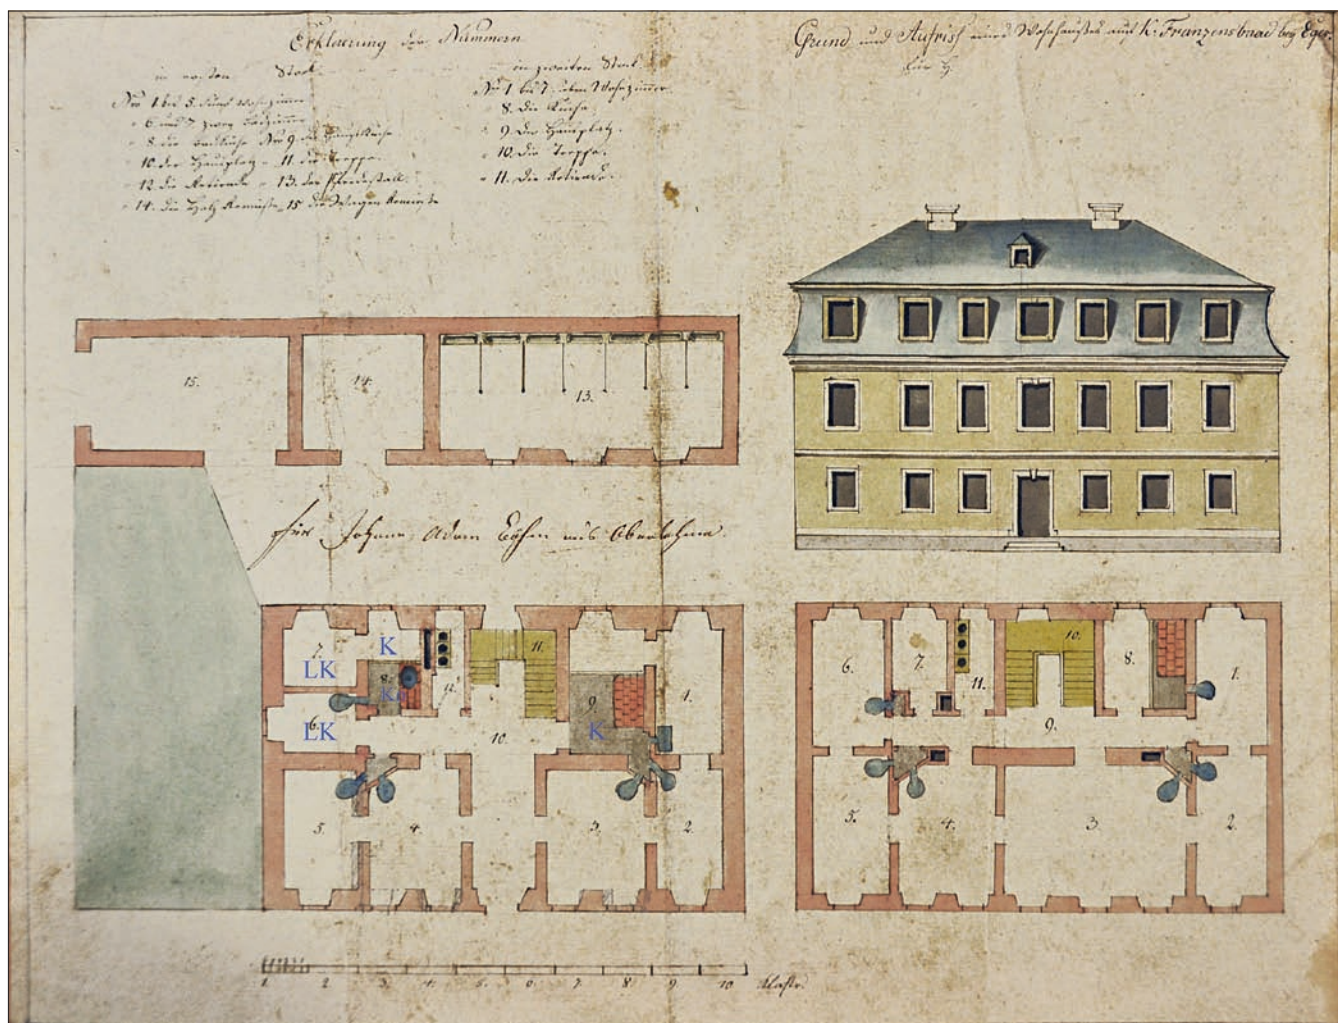 Erklaerung der Nummern
in ersten Stock
Nro 1 bis 5. fünf Wohnzimmer
" 6 und 7 zwey Badzimmer
" 8. die Badküche Nro 9. die Hauptküche
" 10. der Hausplatz " 11. die Treppe.
" 12. die Retirade " 13. der Pferdestall.
" 14. die Holz Remise " 15 die Wagen Remise
in zweiten Stock
Nro 1 bis 7. Wohnzimmer.
" 8. die Küche.
" 9. der Hausplatz.
" 10. die Treppe.
" 11. die Retirade.
Grund und Aufriss eines Wohnhauses auf K. Franzensbaad bey Eger.
für H
15.
14.
13.
für Johann Adam
7.
LK
K
8.
Kü
12.
11.
9.
K
1.
6.
LK
10.
5.
4.
3.
2.
6.
7.
11.
10.
8.
1.
9.
5.
4.
3.
2.
1 2 3. 4. 5. 6 7. 8. 9 10 Klaftr.